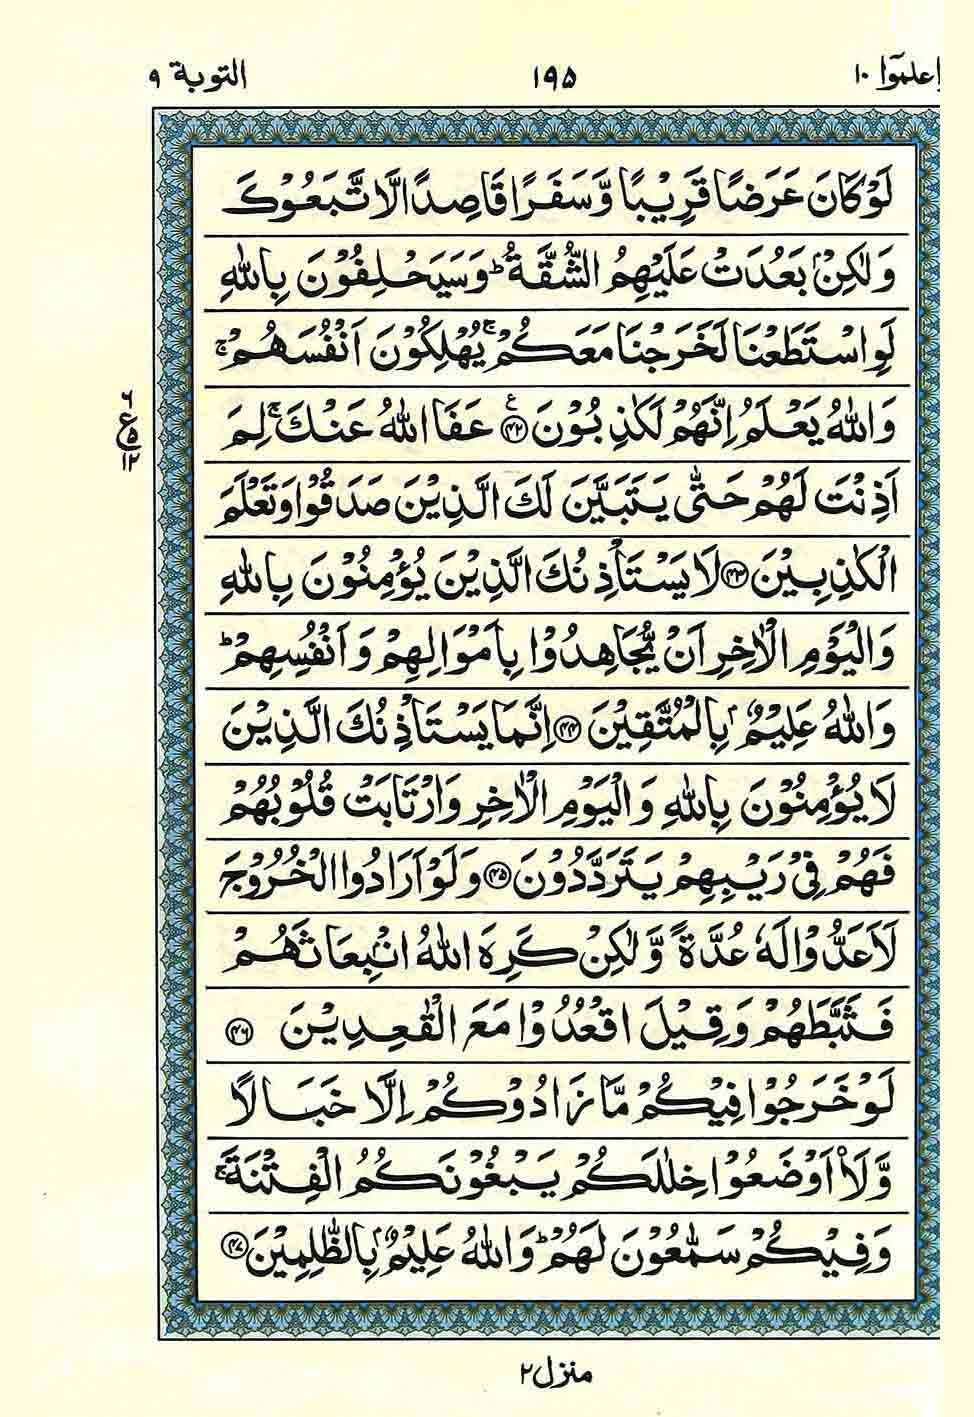 واعلموٓا ١٠
١٩٥
التوبة ٩
لَوْ كَانَ عَرَضًا قَرِيْبًا وَّسَفَرًا قَاصِدًا الَّاتَّبَعُوْكَ
وَلٰكِنْۢ بَعُدَتْ عَلَيْهِمُ الشُّقَّةُ ؕ وَسَيَحْلِفُوْنَ بِاللّٰهِ
لَوِ اسْتَطَعْنَا لَخَرَجْنَا مَعَكُمْ ۚ يُهْلِكُوْنَ اَنْفُسَهُمْ ۚ
وَاللّٰهُ يَعْلَمُ اِنَّهُمْ لَكٰذِبُوْنَ ﴿۴۲﴾ ع عَفَا اللّٰهُ عَنْكَ ۚ لِمَ
اَذِنْتَ لَهُمْ حَتّٰى يَتَبَيَّنَ لَكَ الَّذِيْنَ صَدَقُوْا وَتَعْلَمَ
الْكٰذِبِيْنَ ﴿۴۳﴾ لَا يَسْتَاْذِنُكَ الَّذِيْنَ يُؤْمِنُوْنَ بِاللّٰهِ
وَالْيَوْمِ الْاٰخِرِ اَنْ يُّجَاهِدُوْا بِاَمْوَالِهِمْ وَاَنْفُسِهِمْ ؕ
وَاللّٰهُ عَلِيْمٌۢ بِالْمُتَّقِيْنَ ﴿۴۴﴾ اِنَّمَا يَسْتَاْذِنُكَ الَّذِيْنَ
لَا يُؤْمِنُوْنَ بِاللّٰهِ وَالْيَوْمِ الْاٰخِرِ وَارْتَابَتْ قُلُوْبُهُمْ
فَهُمْ فِيْ رَيْبِهِمْ يَتَرَدَّدُوْنَ ﴿۴۵﴾ وَلَوْ اَرَادُوا الْخُرُوْجَ
لَاَعَدُّوْا لَهٗ عُدَّةً وَّلٰكِنْ كَرِهَ اللّٰهُ انْۢبِعَاثَهُمْ
فَثَبَّطَهُمْ وَقِيْلَ اقْعُدُوْا مَعَ الْقٰعِدِيْنَ ﴿۴۶﴾
لَوْ خَرَجُوْا فِيْكُمْ مَّا زَادُوْكُمْ اِلَّا خَبَالًا
وَّلَا۟اَوْضَعُوْا خِلٰلَكُمْ يَبْغُوْنَكُمُ الْفِتْنَةَ ۚ
وَفِيْكُمْ سَمّٰعُوْنَ لَهُمْ ؕ وَاللّٰهُ عَلِيْمٌۢ بِالظّٰلِمِيْنَ ﴿۴۷﴾
٦
ع ۵
١٢
منزل ٢